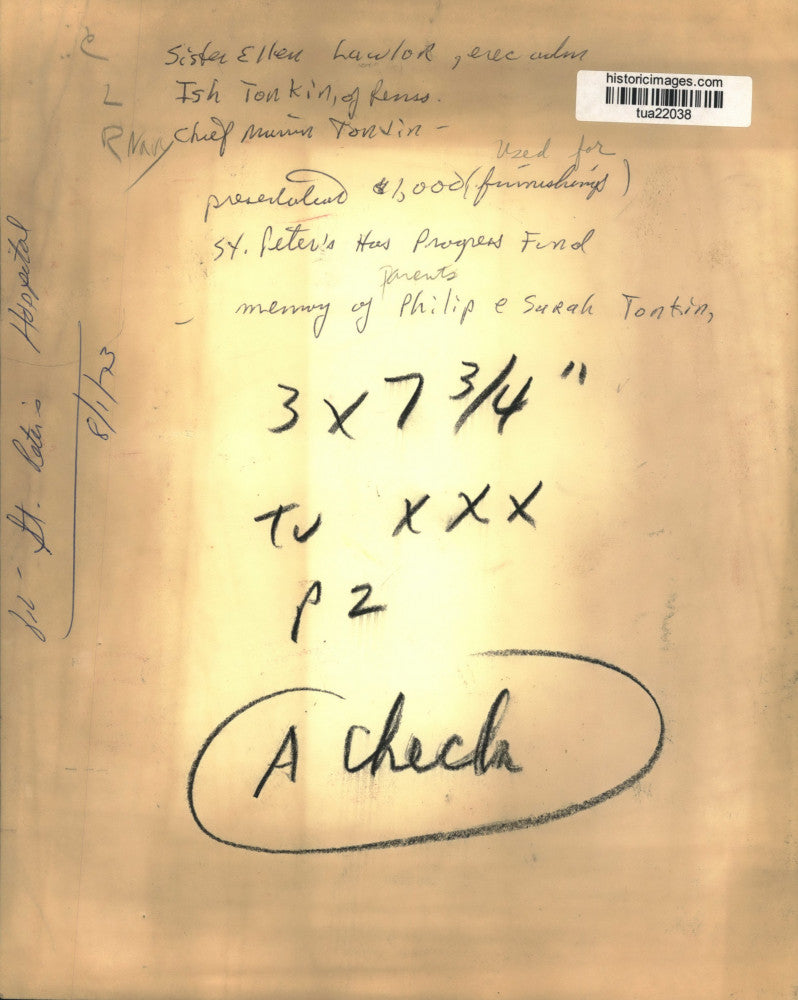 C Sister Ellen Lawlor, exec adm
L Ish Tonkin, of Renss.
R Navy Chief Marvin Tonkin -
Used for
presentation $1,000 (furnishings)
St. Peter's Hos Progress Fund
Parents
memory of Philip e Sarah Tonkin,
3 x 7 3/4"
TU XXX
p 2
A check
St. Peter's Hospital
8/1/73
historicimages.com
tua22038